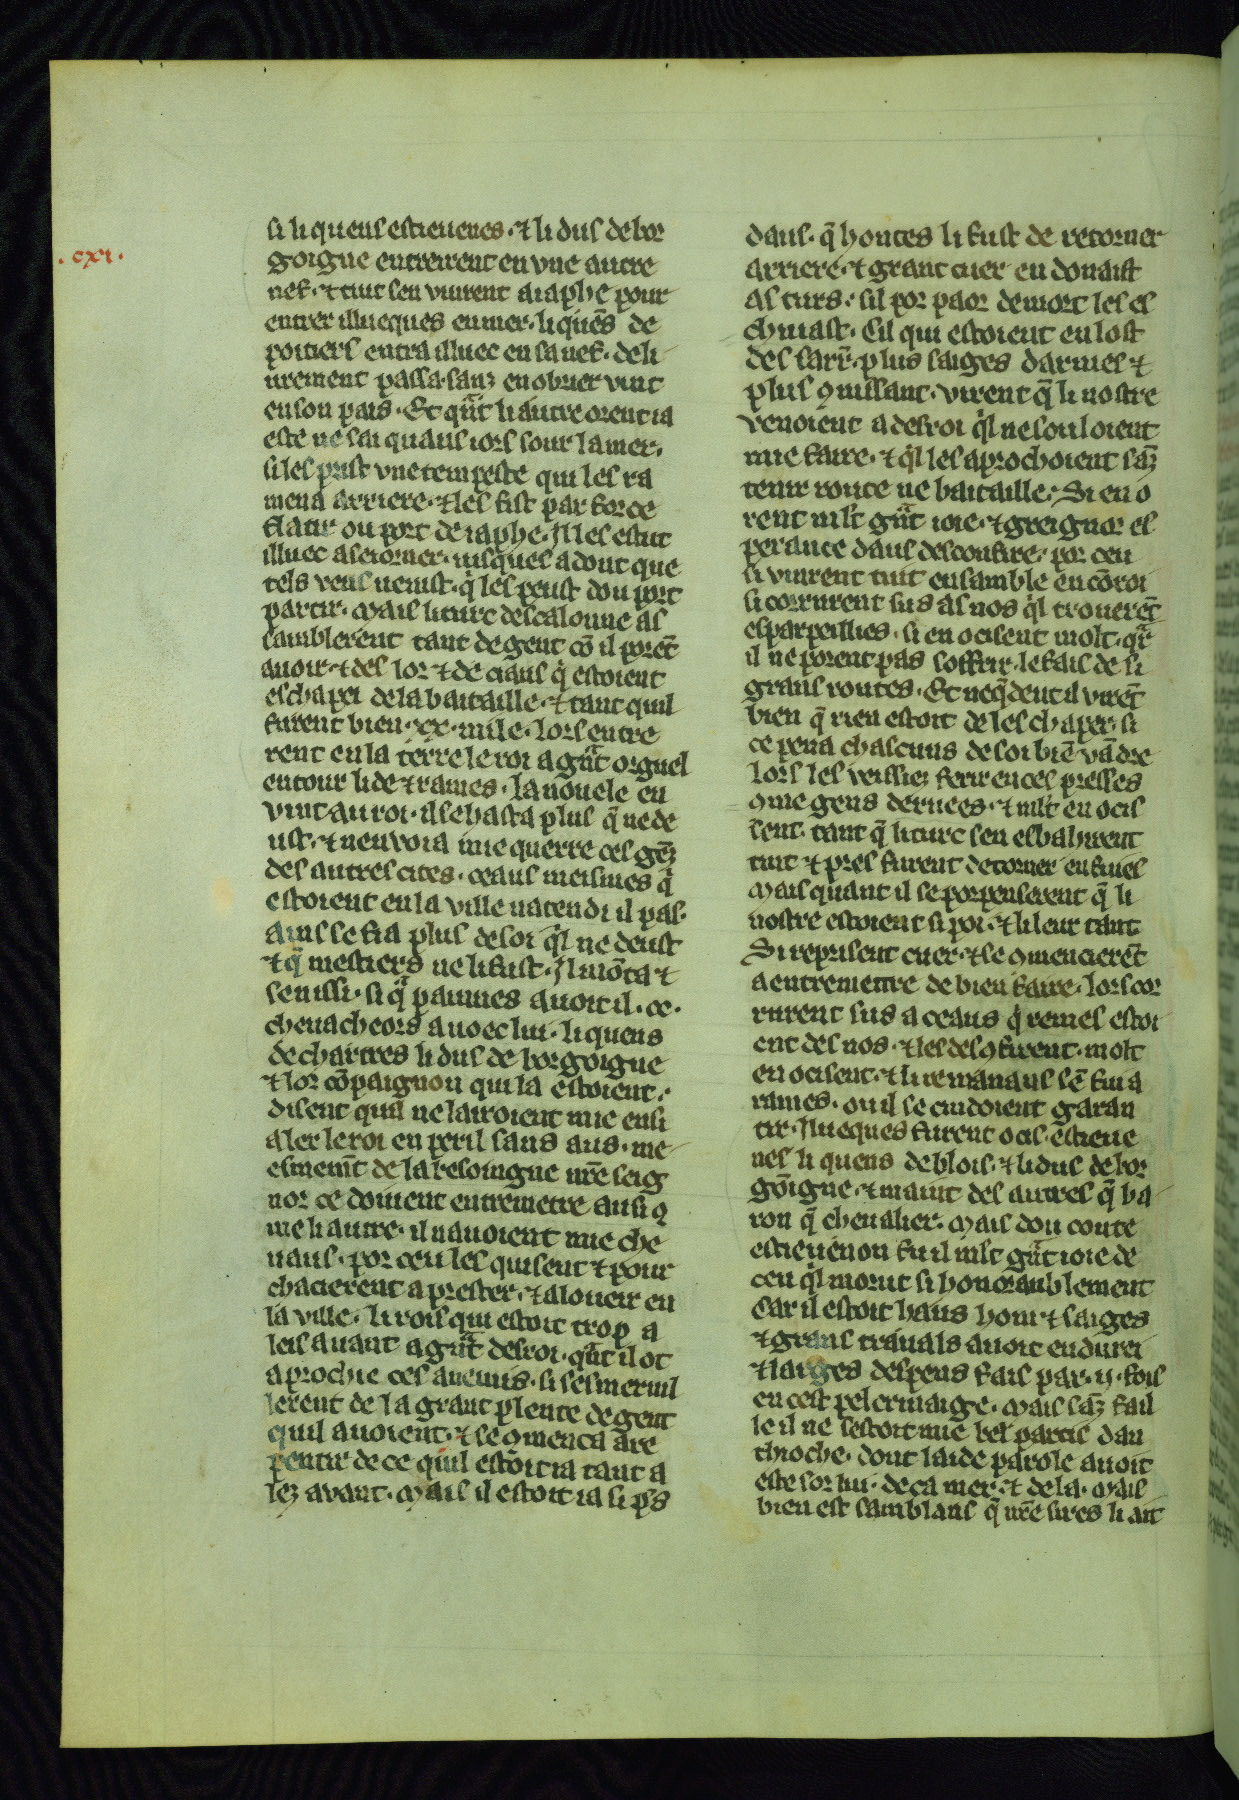 .cxi.
si li quens estieuenes · ⁊ li dus de bor
goigne entreirent en vne autre
nef · ⁊ tuit sen vinrent a iaphe pour
entrer illueques en mer · li quēs de
poitiers entra illuec en sa nef · deli
urement passa · sanz enobrier vint
en son pais · Et qͣnt li autre orent ia
este ne sai quans iors sour la mer ·
si les prist vne tempeste qui les ra
mena arriere · ⁊ les fist par force
flatir ou port de iaphe · Il les estut
illuec aseiorner · iusques adont que
tels vens uenist · q̄ les peust dou port
partir · Mais li turc descalonne as
samblerent tant de gent cō il porēt
auoir · ⁊ des lor ⁊ de ciaus q̄ estoient
eschapei de la bataille · ⁊ tant quil
furent bien · xx · mile · lors entre
rent en la terre le roi a gͣnt orguel
entour lide ⁊ rames · la nouele en
vint au roi · il se hasta plus q̄ ne de
ust · ⁊ nenvoia mie querre ces gēz
des autres cites · ceaus meismes q̄
estoient en la ville natendi il pas ·
ains se fia plus de soi q̄l ne deust
⁊ q̄ mestiers ne li fust · Il mōta ⁊
sen issi · si q̄ paines auoit il · cc ·
cheuacheors auoec lui · li quens
de chartres li dus de borgoigne
⁊ lor cōpaignon qui la estoient ·
disent quil ne lairoient mie ensi
aler le roi en peril sans aus · me
esmemt̄ de la besoingne nr̄e seig
nor ce doiuent entremetre ausi ꝯ
me li autre · il nauoient mie che
uaus · por ceu les quisent ⁊ pour
chacierent a prester · ⁊ a loueir en
la ville · li rois qui estoit trop a
leis auant a gͣnt desroi · qͣnt il ot
aprochie ces anemis · si sesmeruil
lerent de la grant plente de gent
quil auoient · ⁊ se ꝯmenca a re
pentir de ce quil estoit ia tant a
lez avant · Mais il estoit ia si pͣs
daus · q̄ hontes li fust de retorner
arriere · ⁊ grant cuer en donaist
as turs · sil por paor de mort les es
chiuast · Cil qui estoient en lost
des sarr̄ · plus saiges darmes ⁊
plus ꝯnissant · virent q̄ li nostre
venoient a desroi q̄l ne souloient
mie faire · ⁊ q̄l les aprochoient sāz
tenir route ne bataille · Si en o
rent ml̄t gͣnt ioie · ⁊ greignor es
perance daus desconfire · por ceu
si vinrent tuit ensamble en cōroi
si corrurent sus as nos q̄l trouerēt
esparpeillies · si en ocisent molt · qr̄
il ne porent pas soffrir · le fais de si
grans routes · Et neq̄dent il virēt
bien q̄ rien estoit de leschaper · si
ce pena chascuns de soi biē vādre
lors les veissiez ferir en ces presses
ꝯme gens deruees · ⁊ ml̄t en ocis
sent · tant q̄ li turc sen esbahirent
tuit ⁊ pres furent de torner en fuies
Mais quant il se porpenserent q̄ li
nostre estoient si poi · ⁊ li leur tant
Si reprisent cuer · ⁊ se ꝯmencierēt
a entremettre de bien faire · lors cor
rurent sus a ceaus q̄ remes estoi
ent des nos · ⁊ les desꝯfirent · molt
en ocisent · ⁊ li remanans sē fui a
rames · ou il se cuidoient garan
tir · Ilueques furent ocis · estieue
nes li quens de blois · ⁊ li dus de bor
gōigne · ⁊ maint des autres q̄ ba
ron q̄ cheualier · Mais dou conte
estieuenon fu il ml̄t gͣnt ioie de
ceu q̄l morut si honoraublement
Car il estoit haus hom ⁊ saiges
⁊ grans trauals auoit endurei
⁊ larges despens fais par · ij · fois
en cest pelerinaige · Mais sāz fail
le il ne sestoit mie bel partis dan
thioche · dont laide parole auoit
este sor lui · deca mer · ⁊ dela · Mais
bien est samblans q̄ nr̄e sires li ait